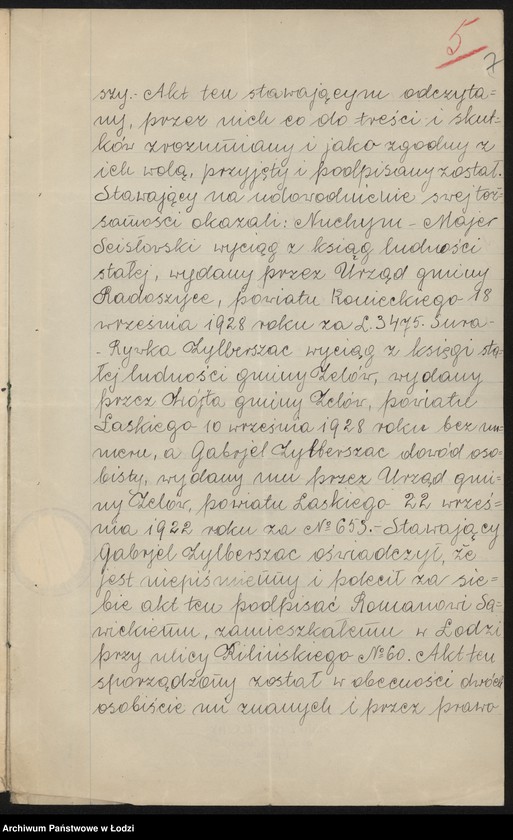 5
7
szy.- Akt ten stawającym odczyta=
ny, przez nich co do treści i skut=
ków zrozumiany i jako zgodny z
ich wolą, przyjęty i podpisany został.
Stawający na udowodnienie swej toż=
samości okazali: Nuchym - Majer
Scisłowski wyciąg z ksiąg ludności
stałej, wydany przez Urząd gminy
Radoszyce, powiatu Konieckiego 18
września 1928 roku za L. 3475. Sura-
- Rywka Zylberszac wyciąg z księgi sta=
łej ludności gminy Zelów, wydany
przez Wójta gminy Zelów, powiatu
Laskiego 10 września 1928 roku bez nu=
meru, a Gabrjel Zylberszac dowód oso=
bisty, wydany mu przez Urząd gmi=
ny Zelów, powiatu Laskiego 22 wrześ=
nia 1922 roku za № 653.- Stawający
Gabrjel Zylberszac oświadczył, że
jest niepiśmienny i polecił za sie=
bie akt ten podpisać Romanowi Sa=
wickiemu, zamieszkałemu w Łodzi
przy ulicy Kilińskiego № 60. Akt ten
sporządzony został w obecności dwóch
osobiście mi znanych i przez prawo
Archiwum Państwowe w Łodzi